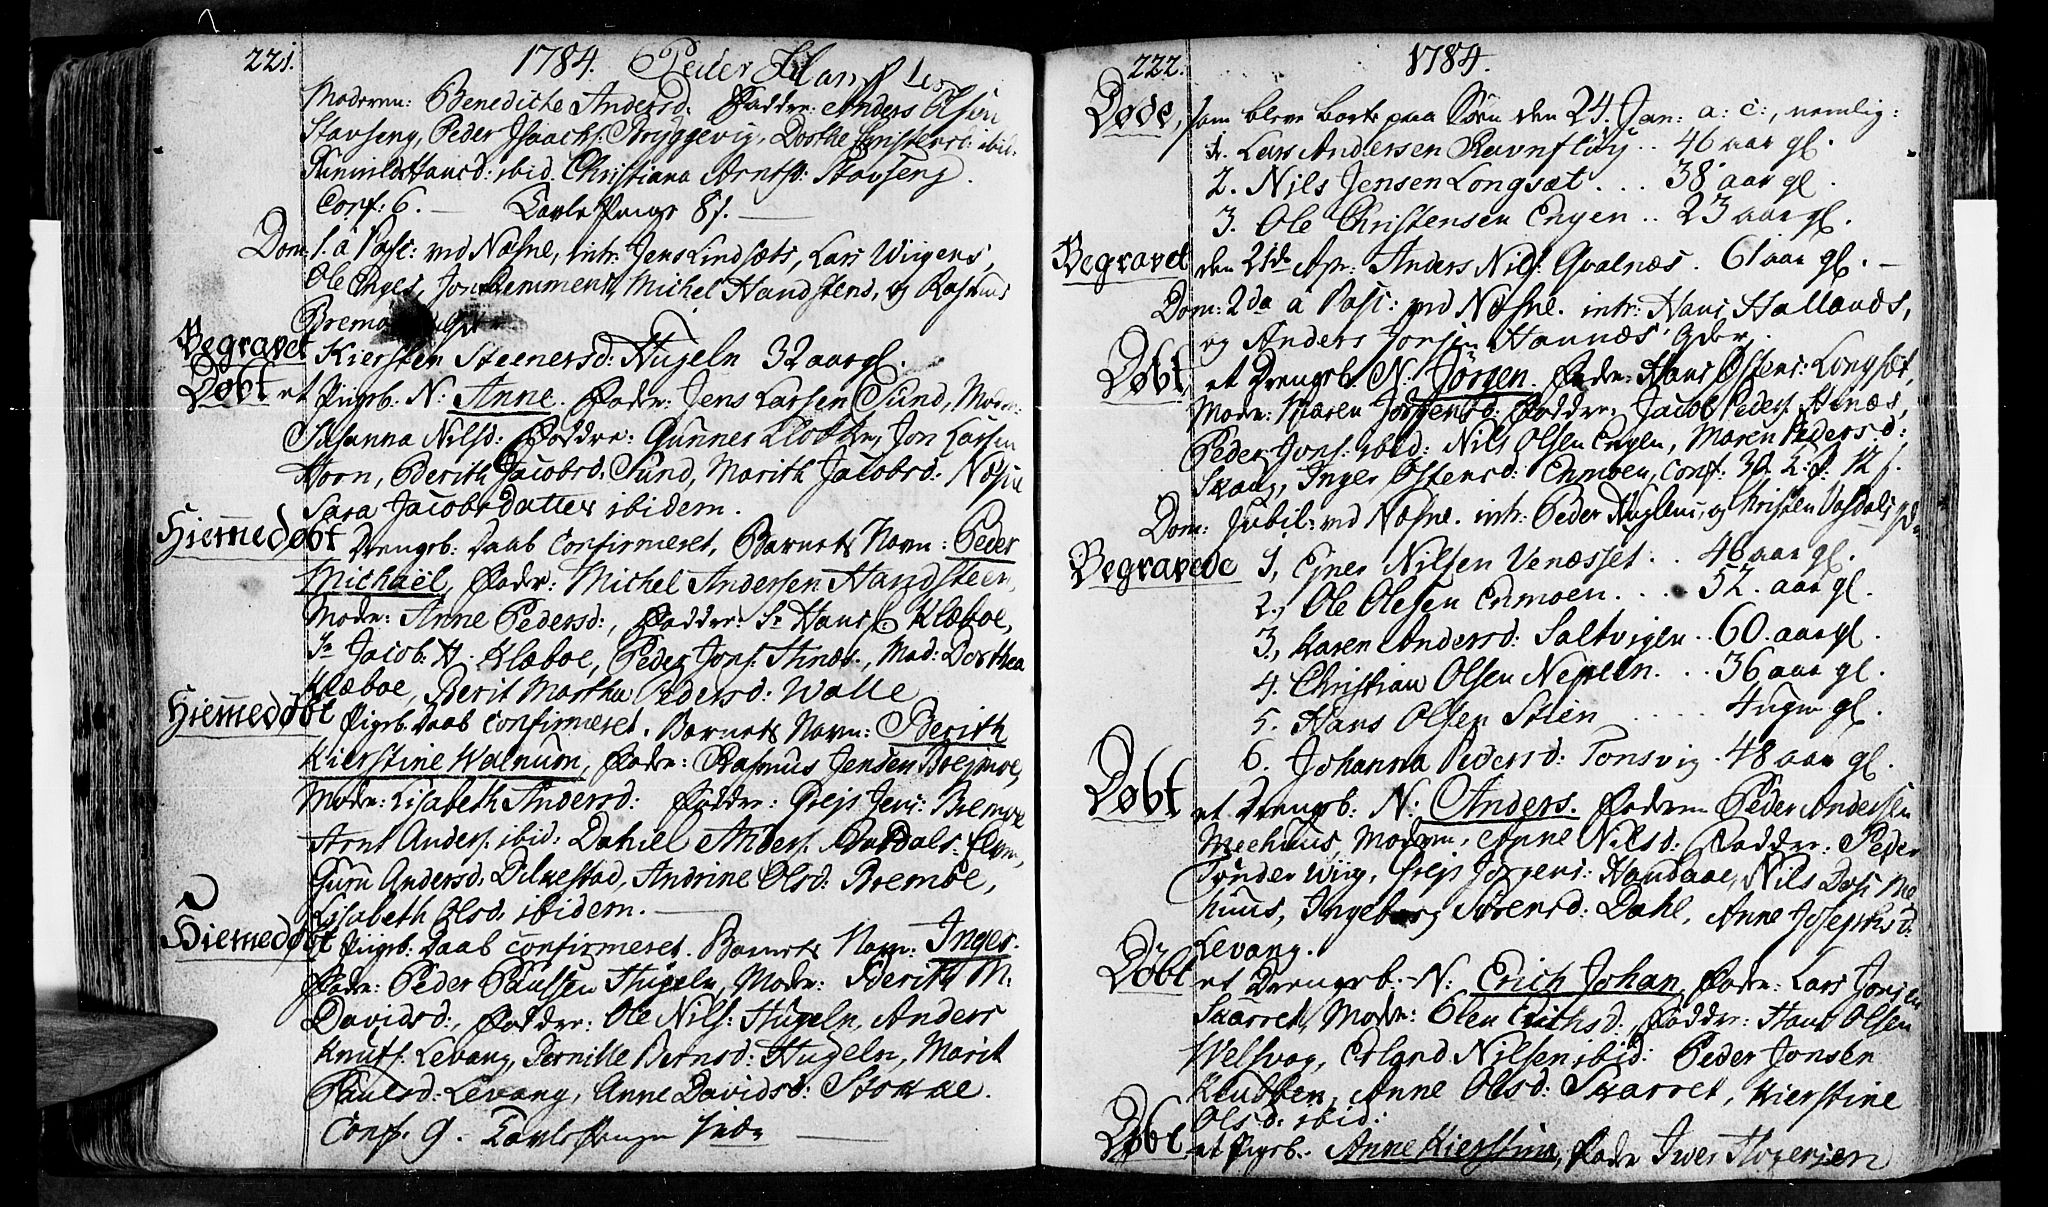 221. 1784. Peder Hans
Moderen: Benedicte Andersd: Faddre: Anders Olsen
Stavseng, Peder Isaachs: Bryggevig, Dorthe Christensd: ibid:
Gunnild Hansd: ibid. Christiana Arntsd: Stavseng.
Conf: 6. — Tavle Penge 8 s. —
Dom: 1. a Pasc: ved Næsne, intr: Jens Lindsæts, Lars Wiigens,
Ole Enges, Jon Remmens, Michel Handstens, og Rasmus
Bremo
Begravet Kiersten Steenersd: Hugeln 32 aar gl.
Døbt et Pigeb: N: Anne. Fader: Jens Larsen Sund, Moder:
Susanna Nilsd: Faddre: Gunner Klokker, Jon Larsen
Horn, Berith Jacobsd: Sund, Marith Jacobsd: Næsne
Sara Jacobsdatter ibidem.
Hiemmedøbt Drengeb: Daab confirmeret, Barnets Navn: Peder
Michaël, Fader: Michel Andersen Handsteen,
Moder: Anne Pedersd:, Faddre: Sr Hans Klæboe,
Sr Jacob H. Klæboe, Peder Jons: Alnæs, Mad: Dorthea
Klæboe, Berit Martha Pedersd: Walle
Hiemmedøbt Pigeb. Daab confirmeret. Barnets Navn: Berith
Kierstine Walnum, Fader: Rasmus Jensen Bremoe,
Moder: Lisabeth Andersd: Faddre: Grejs Jens: Bremoe
Arnt Anders: ibid: Daniel Anders:
Guru Andersd: Dilkestad, Andrine Olsd: Bremoe,
Lisabeth Olsd: ibidem. —
Hiemmedøbt Pigeb: Daab confirmeret. Barnets Navn: Inger.
Fader: Peder Paulsen Hugeln, Moder: Berith M.
Davidsd:, Faddre: Ole Nils: Hugeln, Anders
Knuts: Levang, Pernille Bernsd: Hugeln, Marit
Paulsd: Levang, Anne Davidsd: Stokke.
Conf. 9. Tavle Penge —
222. 1784.
Døde, som bleve borte paa Søen den 24. Jan: a: c:, nemlig:
1. Lars Andersen Ravnfløy .. 46 aar gl.
2. Nils Jensen Longsæt . . . 38 aar gl.
3. Ole Christensen Engen .. 23 aar gl.
Begravet den 21de Apr: Anders Nils: Qvalnæs. 61 aar gl. —
Dom: 2da a Pasc: ved Næsne. intr: Hans Hallands,
og Anders Jonsen Hannæs'
Døbt et Drengeb. N: Jörgen. Fader: Hans Østens: Longsæt,
Moder: Maren Jörgensd: Faddre: Jacob Peders: Alnæs,
Peder Jons: ibid: Nils Olsen Engen, Maren Pedersd:
Skaug, Inger Østensd: Enmoen, Conf: 30. 12 s.
Dom: Jubil: ved Næsne. intr: Peder Huglens, og Christen
Begravede 1, Ejner Nilsen Venæsset . . 46 aar gl.
2., Ole Olesen Enmoen . . . 52. aar gl.
3., Karen Andersd: Saltvigen .. 60. aar gl.
4. Christian Olsen Nepeln. . . 36 aar gl.
5. Hans Olsen Stien . . . . . 4 uger gl.
6. Johanna Pedersd: Tonsvig. 48 aar gl.
Døbt et Drengeb: N: Anders. Faderen Peder Andersen
Meehuus, Moderen, Anne Nilsd: Faddre: Peder
Tønder Wiig, Grejs Jörgens: Handaae, Nils Me
huus, Ingeborg Sörensd: Dahl, Anne Josephsd:
Levang.
Døbt et Drengeb: N: Erich Johan, Fader: Lars Jonsen
Skarret, Moder: Elen Erichsd:, Faddre: Hans Olsen
Welsvog, Erland Nilsen ibid: Peder Jonsen
Klubben, Anne Olsd: Skarret, Kierstine
Olsd: ibid:
Døbt et Pigeb: Anne Kierstina, Fader Iver